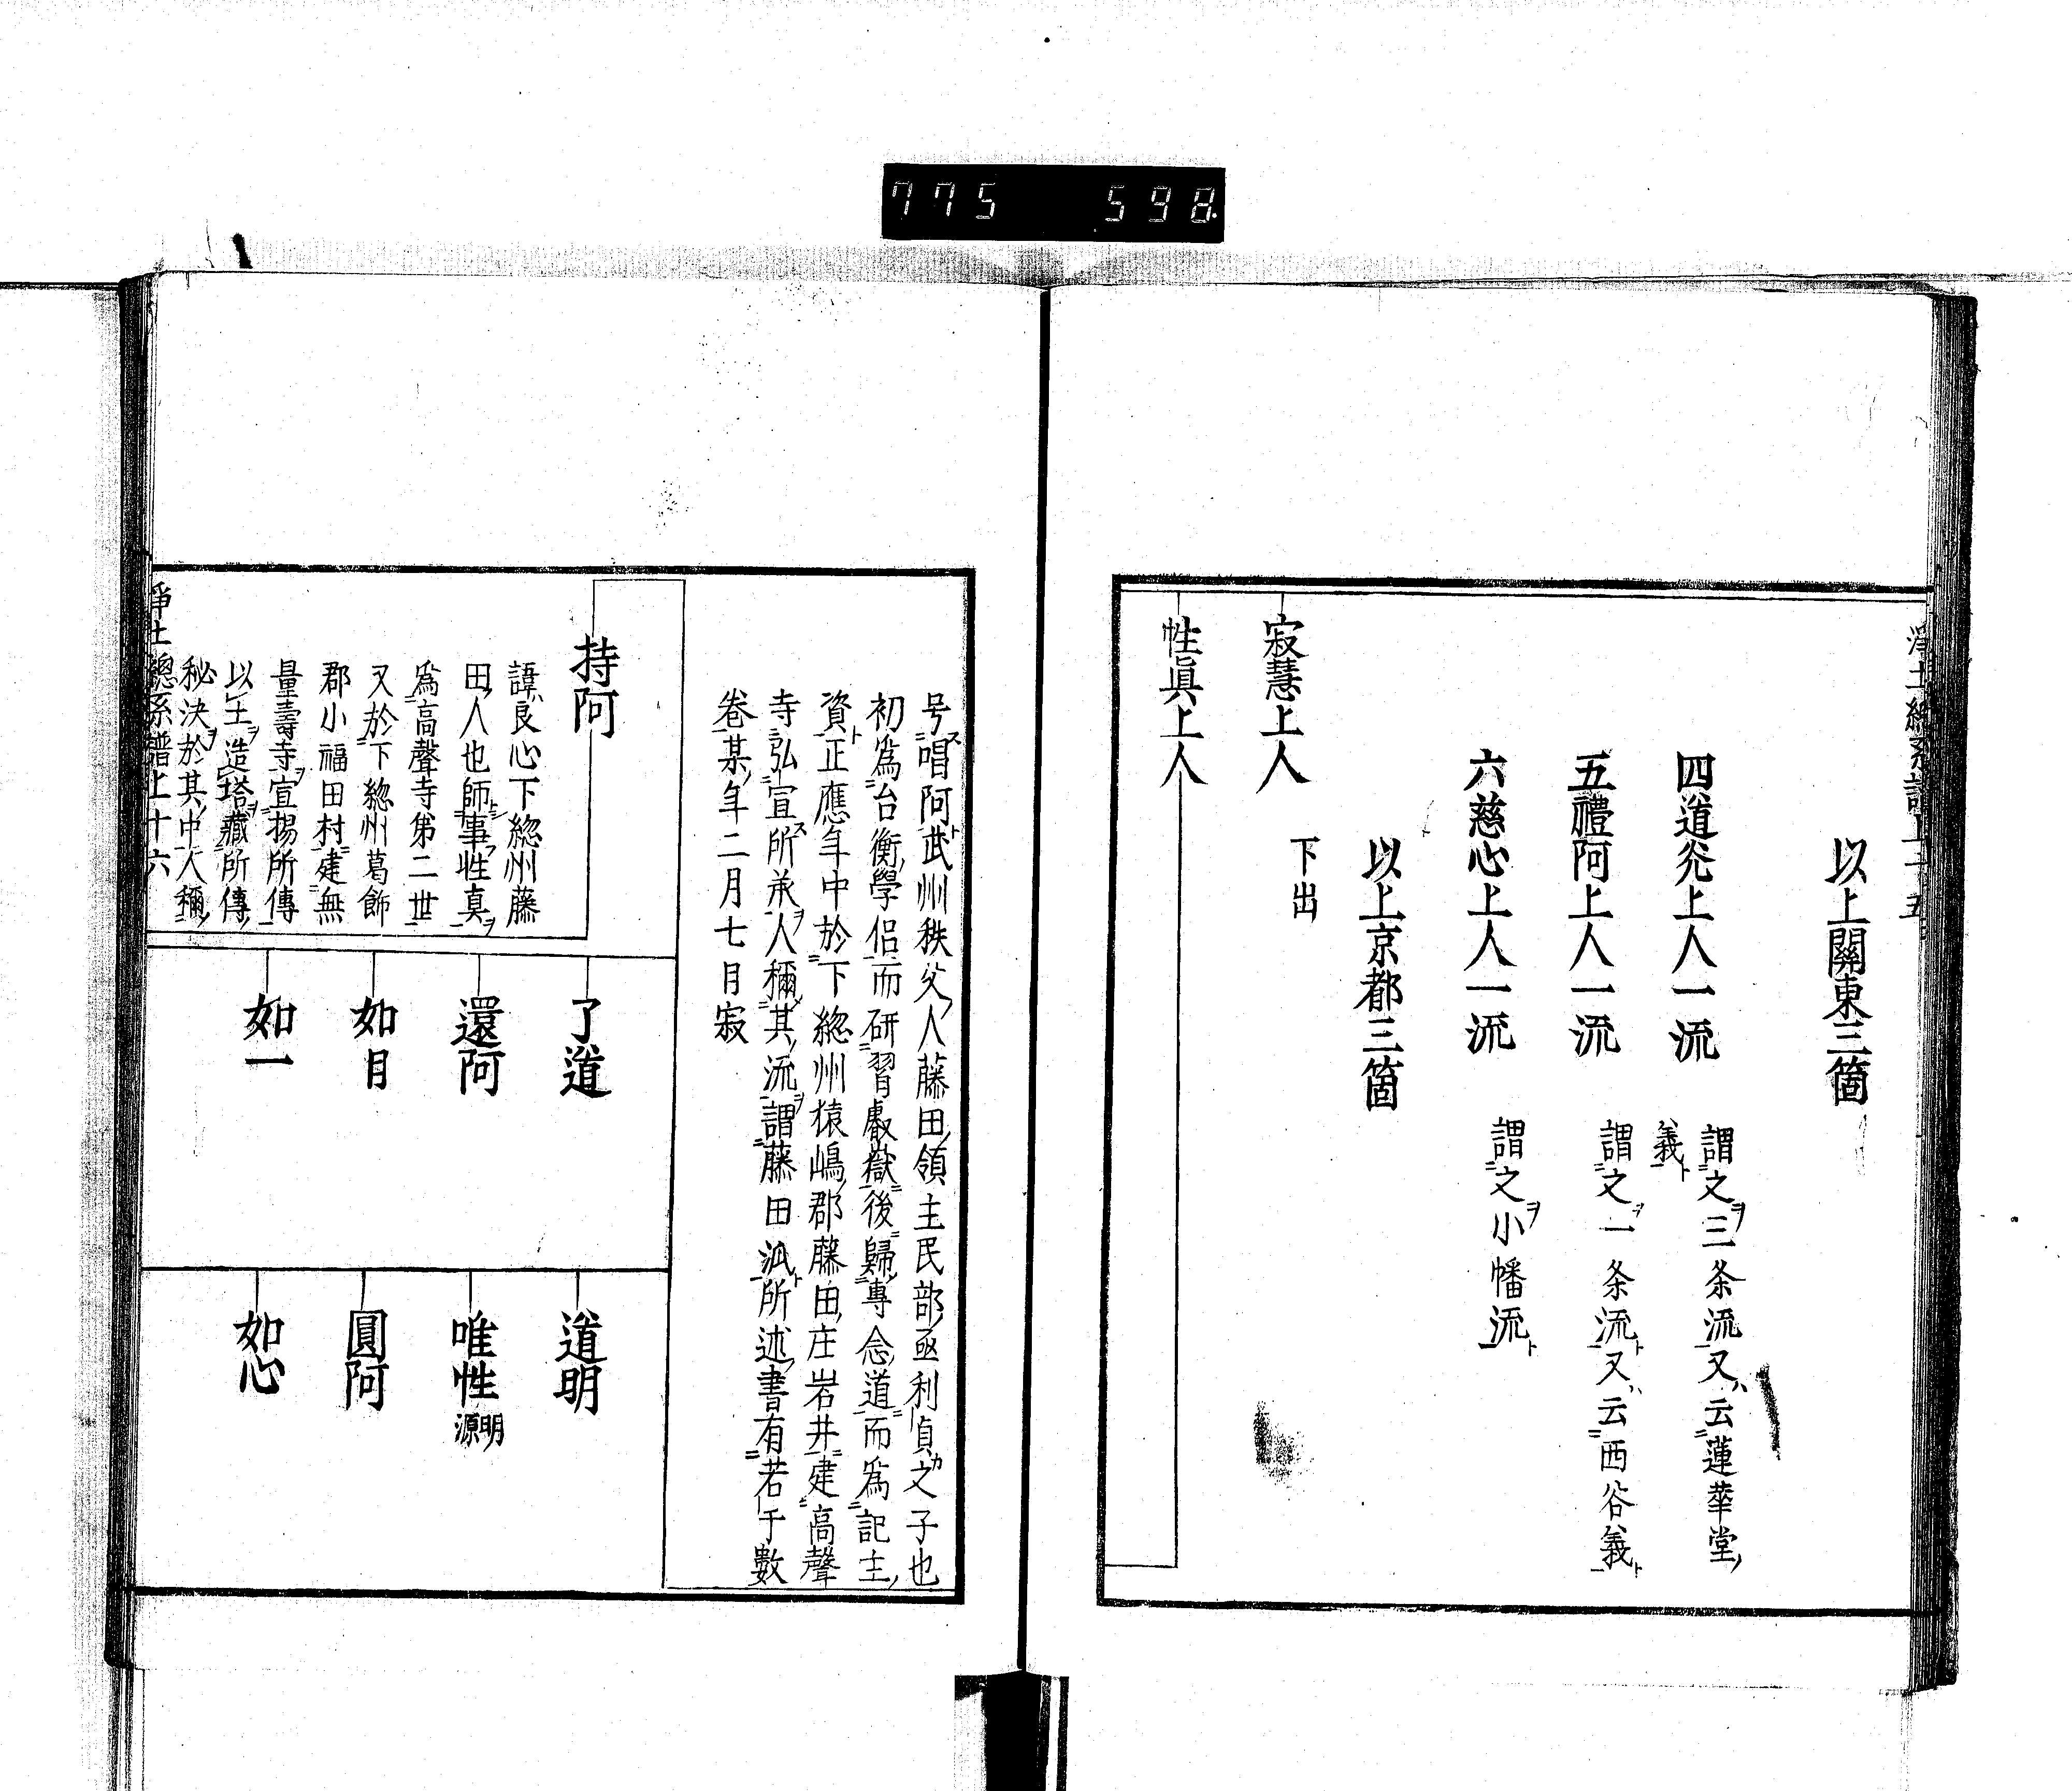 775 598
淨土總系譜上十五
以上關東三箇
四道光上人一流 謂之三条流又云蓮華堂
義
五禮阿上人一流 謂之一条流又云西谷義
六慈心上人一流 謂之小幡流
以上京都三箇
寂慧上人 下出
性眞上人
号唱阿武州秩父人藤田領主民部亟利貞之子也
初爲台衡學侶而研習叡嶽後歸專念道而爲記主
資正應年中於下総州猿嶋郡藤田庄岩井建高聲
寺弘宣所承人稱其流謂藤田派所述書有若干數
卷某年二月七日寂
持阿
諱良心下総州藤
田人也師事性真
爲高聲寺第二世
又於下総州葛飾
郡小福田村建無
量壽寺宣揚所傳
以王造塔藏所傳
秘決於其中人稱
了道
還阿
如月
如一
道明
唯性 明源
圓阿
如心
淨土總系譜上十六